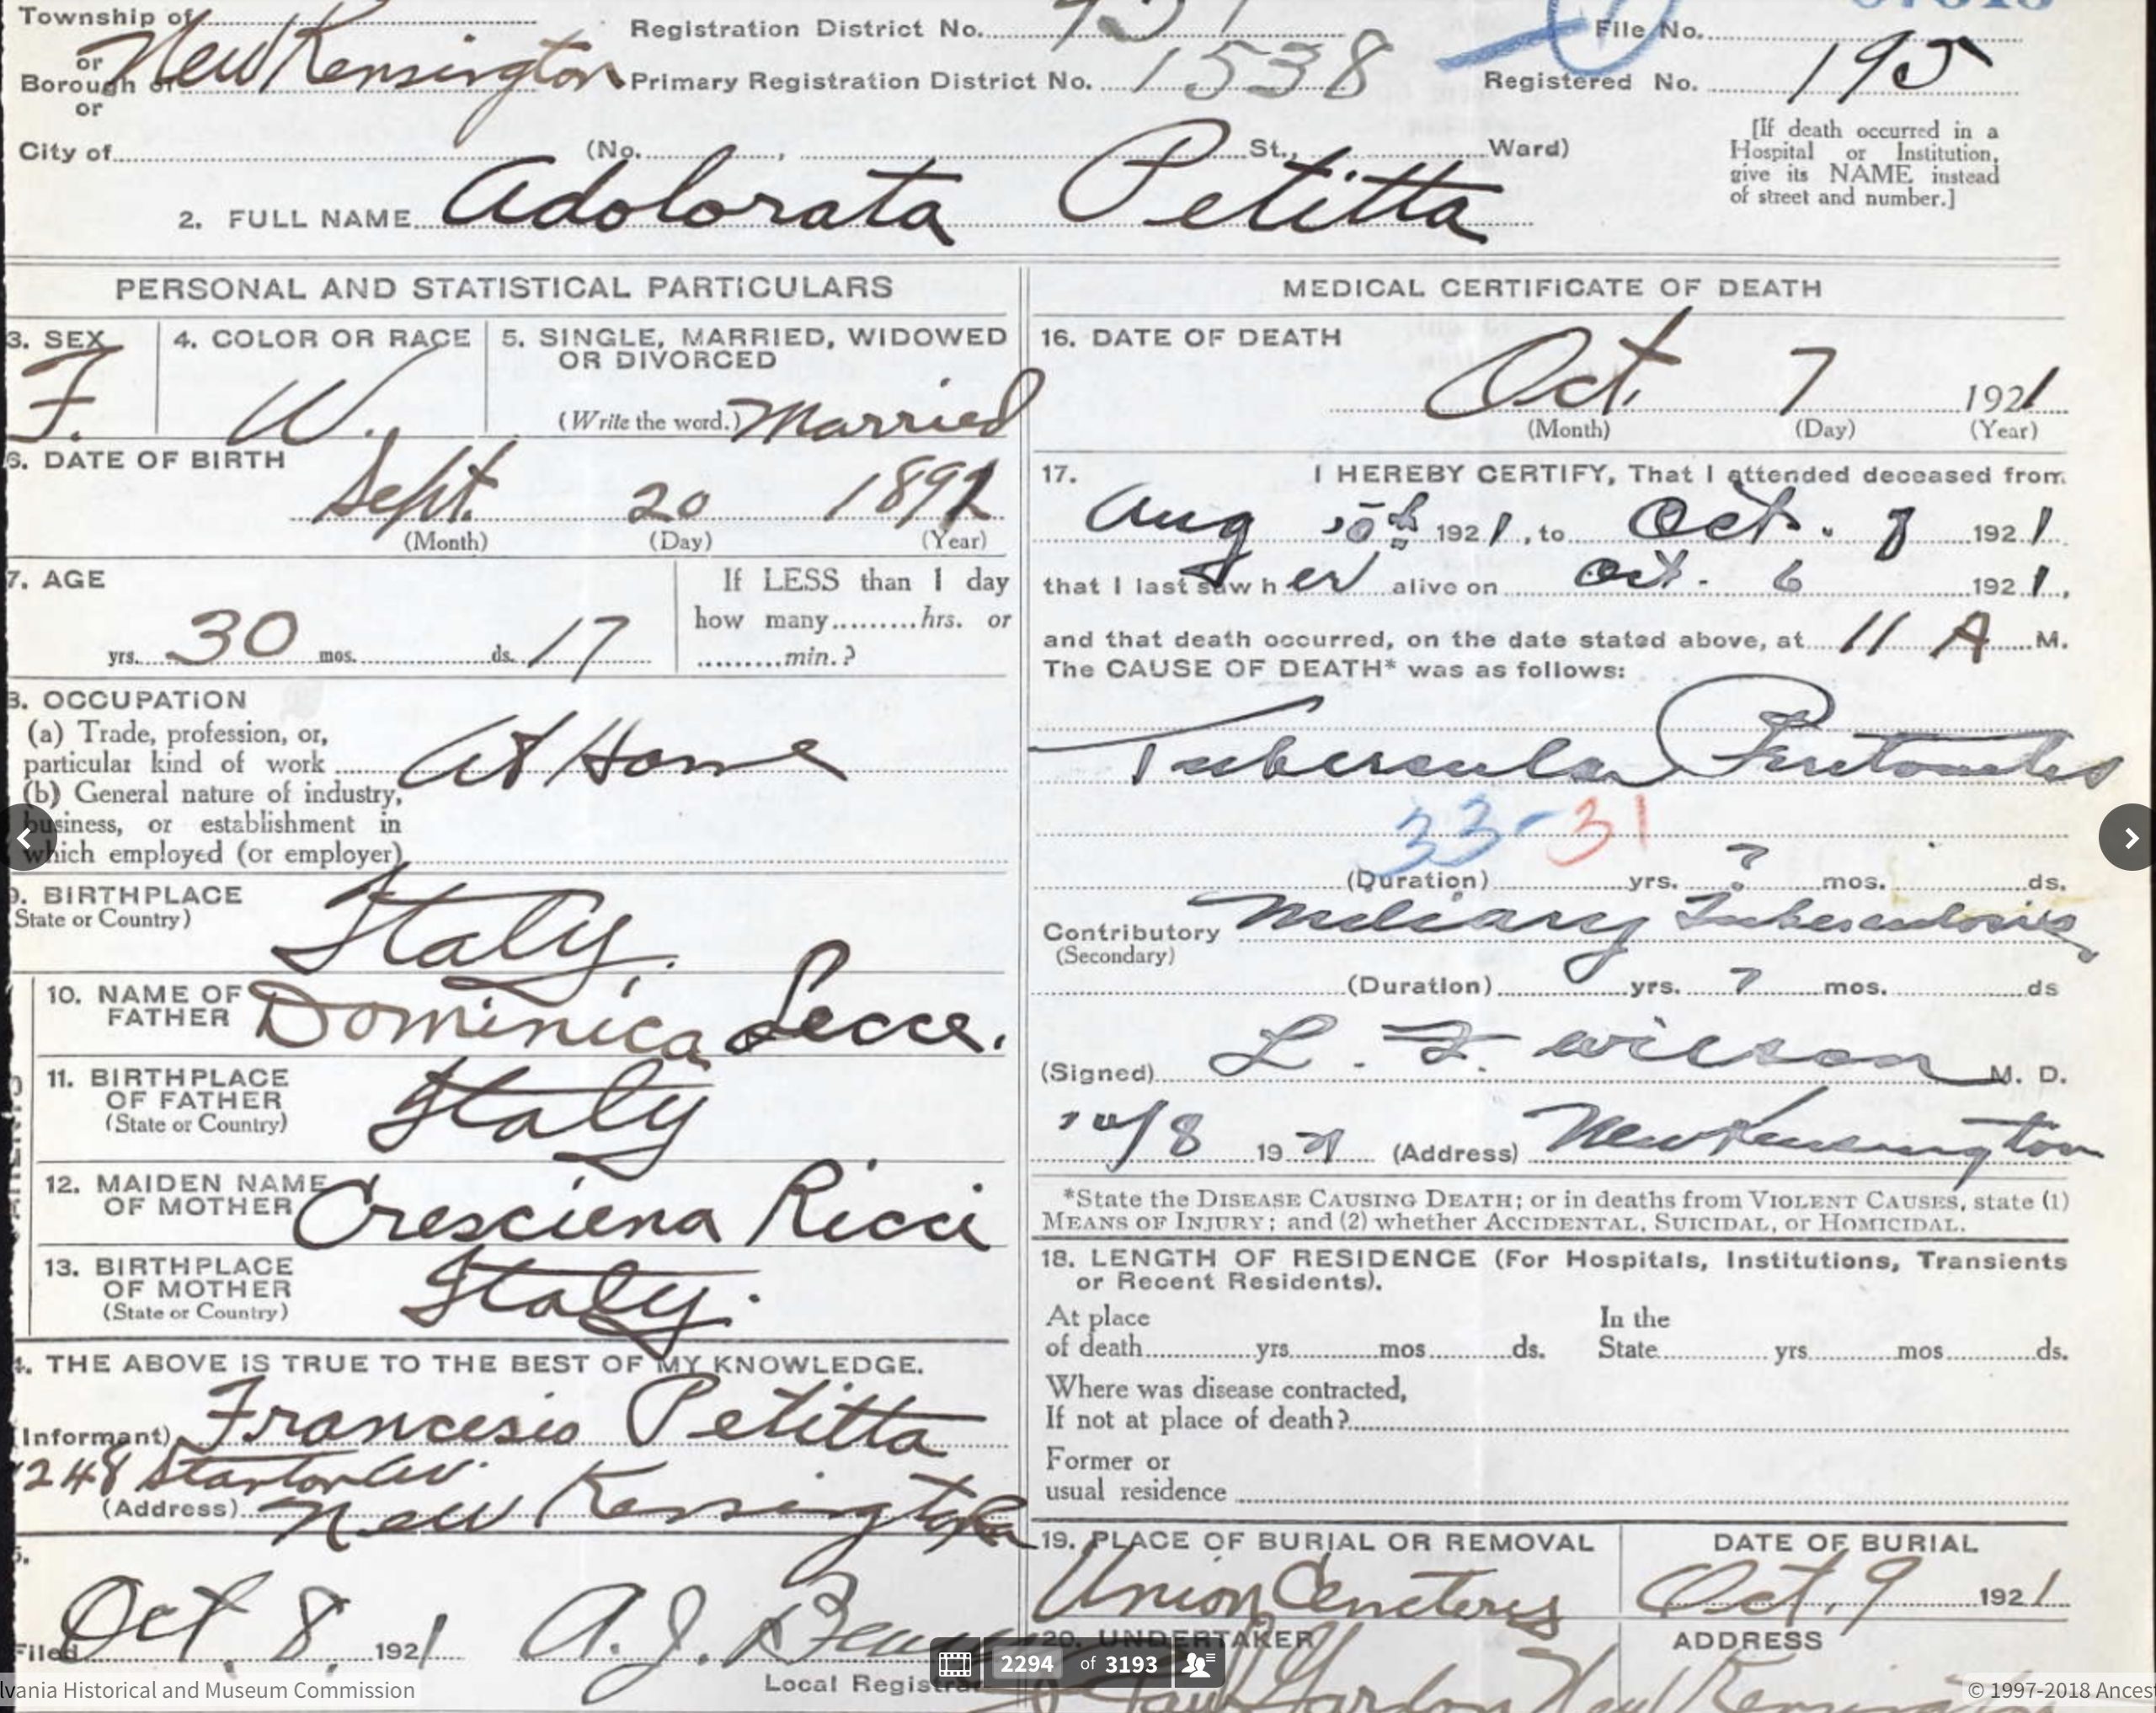 Township of
or
Borough of New Kensington
or
City of
Registration District No.
Primary Registration District No. 1538
File No.
Registered No. 195
(No. , St., Ward)
[If death occurred in a
Hospital or Institution,
give its NAME instead
of street and number.]
2. FULL NAME Adolorata Petitta
PERSONAL AND STATISTICAL PARTICULARS
3. SEX
F.
4. COLOR OR RACE
W.
5. SINGLE, MARRIED, WIDOWED
OR DIVORCED
(Write the word.) Married
6. DATE OF BIRTH
Sept. 20 1891
(Month) (Day) (Year)
7. AGE
30 yrs. mos. ds. 17
If LESS than 1 day
how many hrs. or
min.?
8. OCCUPATION
(a) Trade, profession, or,
particular kind of work At Home
(b) General nature of industry,
business, or establishment in
which employed (or employer)
9. BIRTHPLACE
State or Country) Italy.
10. NAME OF
FATHER Dominica Lecce.
11. BIRTHPLACE
OF FATHER
(State or Country) Italy
12. MAIDEN NAME
OF MOTHER Cresciena Ricci
13. BIRTHPLACE
OF MOTHER
(State or Country) Italy.
4. THE ABOVE IS TRUE TO THE BEST OF MY KNOWLEDGE.
(Informant) Francesio Petitta
248 Stanton Av.
(Address) New Kensington Pa
5.
Filed Oct 8, 1921 A. J.
Local Registrar
MEDICAL CERTIFICATE OF DEATH
16. DATE OF DEATH
Oct. 7 1921
(Month) (Day) (Year)
17. I HEREBY CERTIFY, That I attended deceased from
Aug 1921, to Oct. 8 1921.
that I last saw her alive on Oct. 6 1921,
and that death occurred, on the date stated above, at 11 A M.
The CAUSE OF DEATH* was as follows:
Tubercular Peritonitis
33-31
(Duration) yrs. ? mos. ds.
Contributory Miliary Tuberculosis
(Secondary)
(Duration) yrs. ? mos. ds
(Signed) L. F. Wilson M. D.
10/8 1921 (Address) New Kensington
*State the DISEASE CAUSING DEATH; or in deaths from VIOLENT CAUSES, state (1)
MEANS OF INJURY; and (2) whether ACCIDENTAL, SUICIDAL, or HOMICIDAL.
18. LENGTH OF RESIDENCE (For Hospitals, Institutions, Transients
or Recent Residents).
At place
of death yrs mos ds.
In the
State yrs mos ds.
Where was disease contracted,
If not at place of death?
Former or
usual residence
19. PLACE OF BURIAL OR REMOVAL
Union Cemetery
DATE OF BURIAL
Oct. 9 1921
20. UNDERTAKER
ADDRESS
New Kensington
2294 of 3193
lvania Historical and Museum Commission
© 1997-2018 Ances